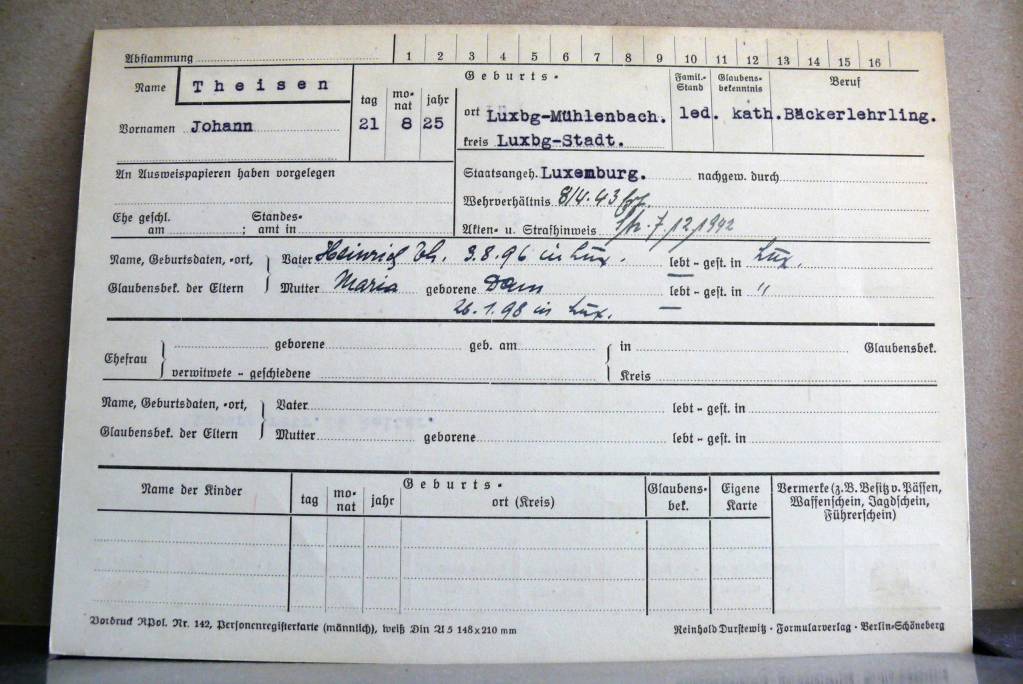 Abstammung 1 2 3 4 5 6 7 8 9 10 11 12 13 14 15 16
Name Theisen
Vornamen Johann
tag monat jahr
21 8 25
Geburts-
ort Luxbg-Mühlenbach.
kreis Luxbg-Stadt.
Famil.-Stand
led.
Glaubensbekenntnis
kath.
Beruf
Bäckerlehrling.
An Ausweispapieren haben vorgelegen
Staatsangeh. Luxemburg. nachgew. durch
Wehrverhältnis 8/4.43
Ehe geschl. am ; Standesamt in
Akten- u. Strafhinweis 7.12.1942
Name, Geburtsdaten, -ort, Vater Heinrich Th. 3.8.96 in Lux. lebt - gest. in Lux.
Glaubensbek. der Eltern Mutter Maria geborene Dam lebt - gest. in "
26.1.98 in Lux.
Ehefrau geborene geb. am in Glaubensbek.
verwitwete - geschiedene Kreis
Name, Geburtsdaten, -ort, Vater lebt - gest. in
Glaubensbek. der Eltern Mutter geborene lebt - gest. in
Name der Kinder
Geburts-
tag monat jahr ort (Kreis)
Glaubensbek.
Eigene Karte
Vermerke (z.B. Besitz v. Pässen, Waffenschein, Jagdschein, Führerschein)
Vordruck RPol. Nr. 142, Personenregisterkarte (männlich), weiß Din A 5 148 x 210 mm
Reinhold Durstewitz · Formularverlag · Berlin-Schöneberg